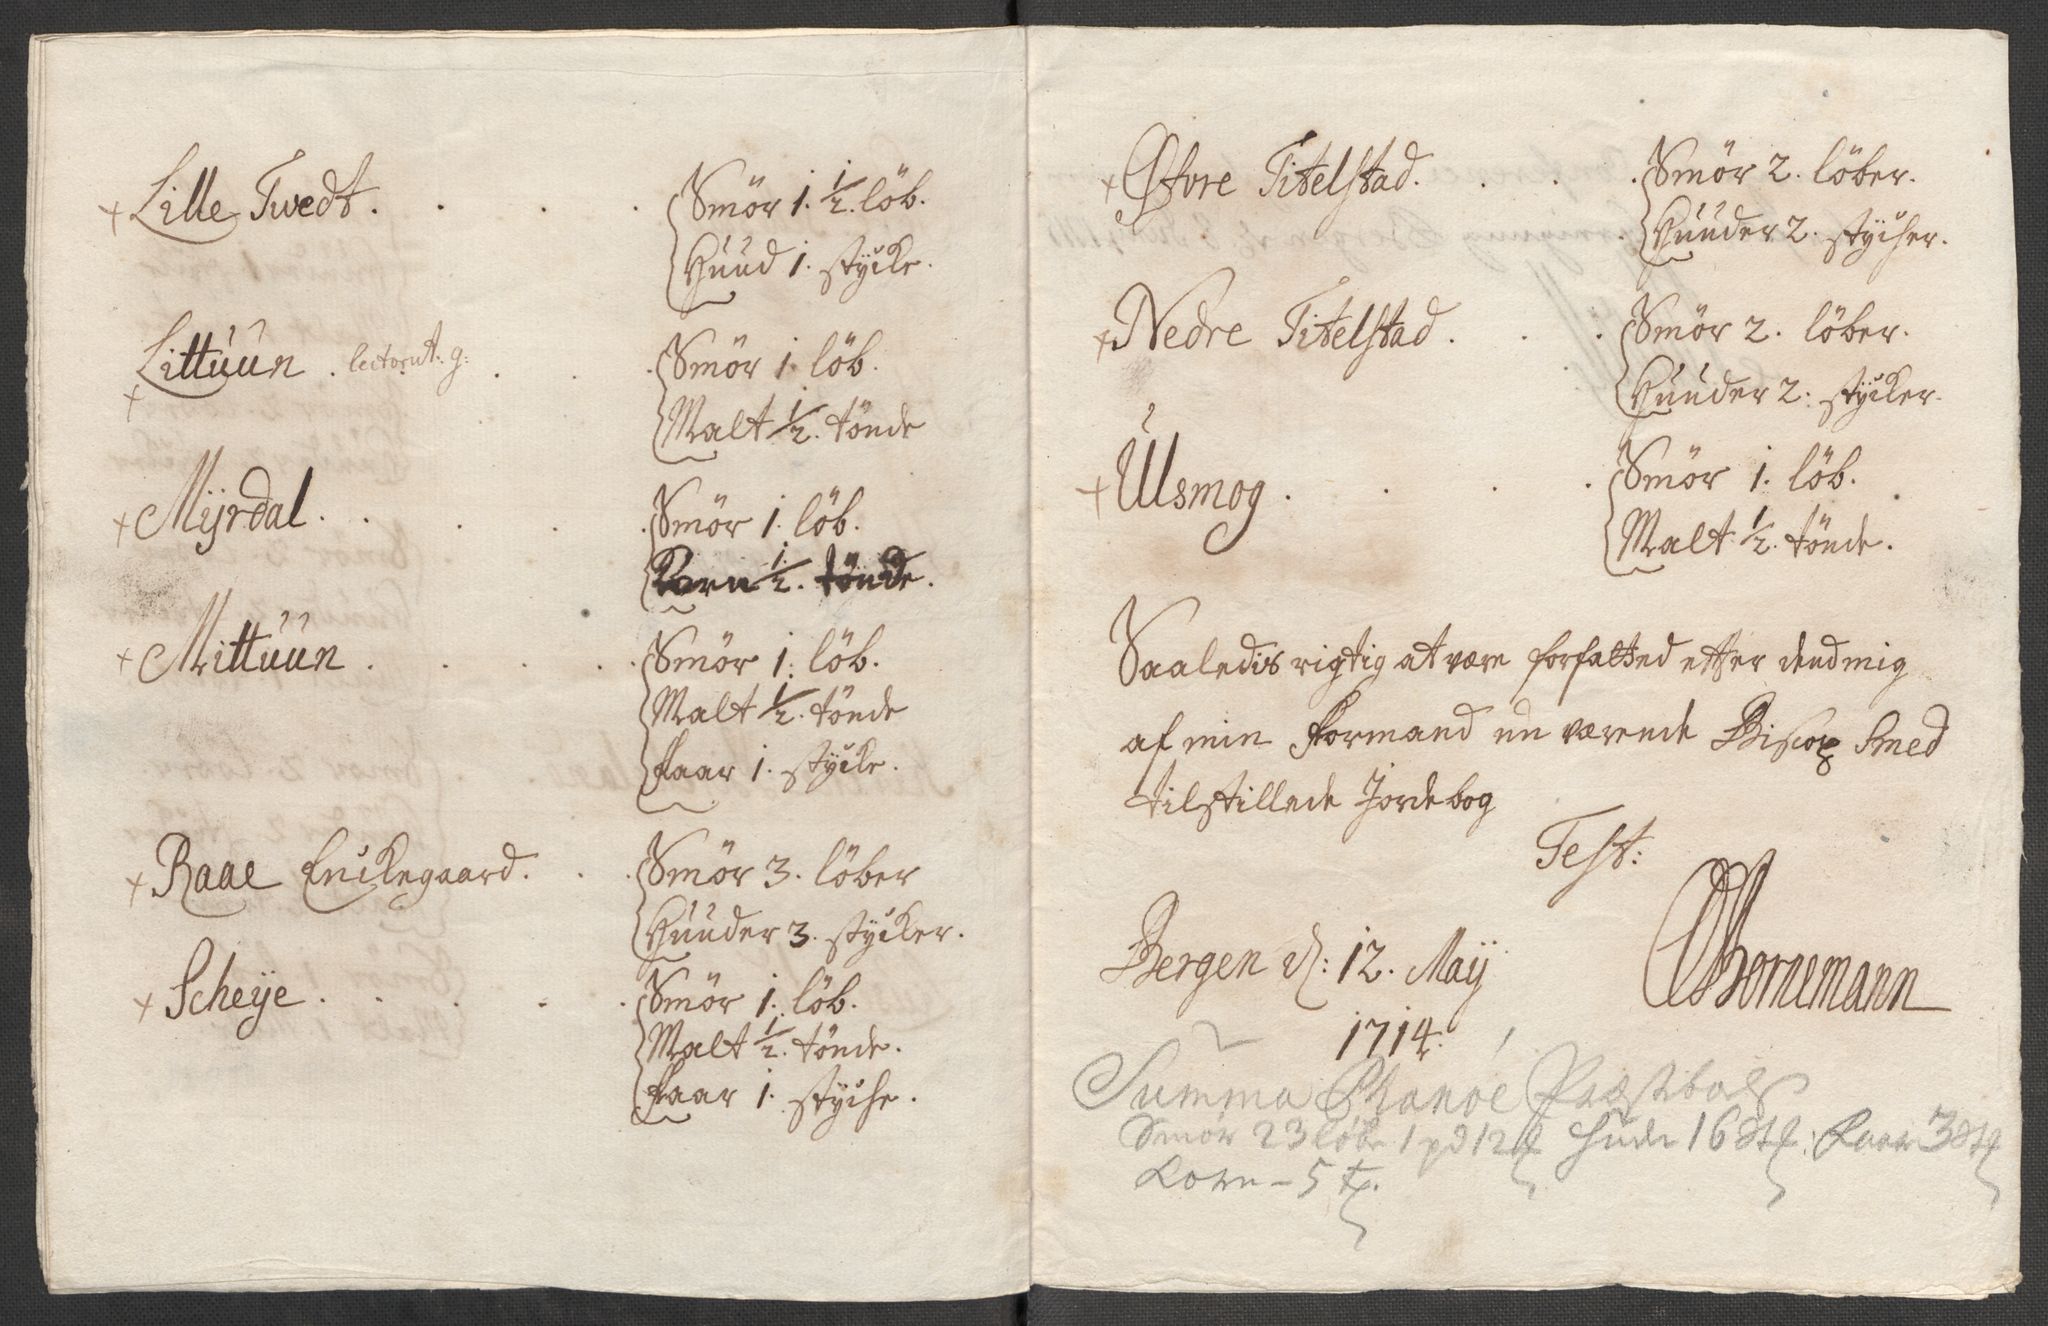 + Lille Twedt. Smör 1. 1/2. löb.
Huud 1. stycke.
+ Littuun. lectorat. g: Smör 1. löb.
Malt 1/2. tönde
+ Myrdal. Smör 1. löb.
Korn 1/2. tönde.
+ Mittuun. Smör 1. löb.
Malt 1/2. tönde
Faar 1. stycke.
+ Raae Enckegaard. Smör 3. löber
Huuder 3. stycker.
+ Scheye. Smör 1. löb.
Malt 1/2. tönde.
Faar 1. stycke.
+ Øfvre Titelstad. Smör 2. löber.
Huuder 2. stycker.
+ Nedre Titelstad. Smör 2. löber.
Huuder 2. stycker.
+ Ulsmog. Smör 1. löb.
Malt 1/2. tönde.
Saaledis rigtig at være forfatted efter dend mig
af min Formand nu værende Biscop Smed
tilstillede Jordebog
Test:
Bergen d: 12. Maij
1714.
Bornemann
Summa Phanöe Præstbol
Smör 23 löbe 1 pd 12 Hude 16 st. Faar 3 st
Korn – 5 t.